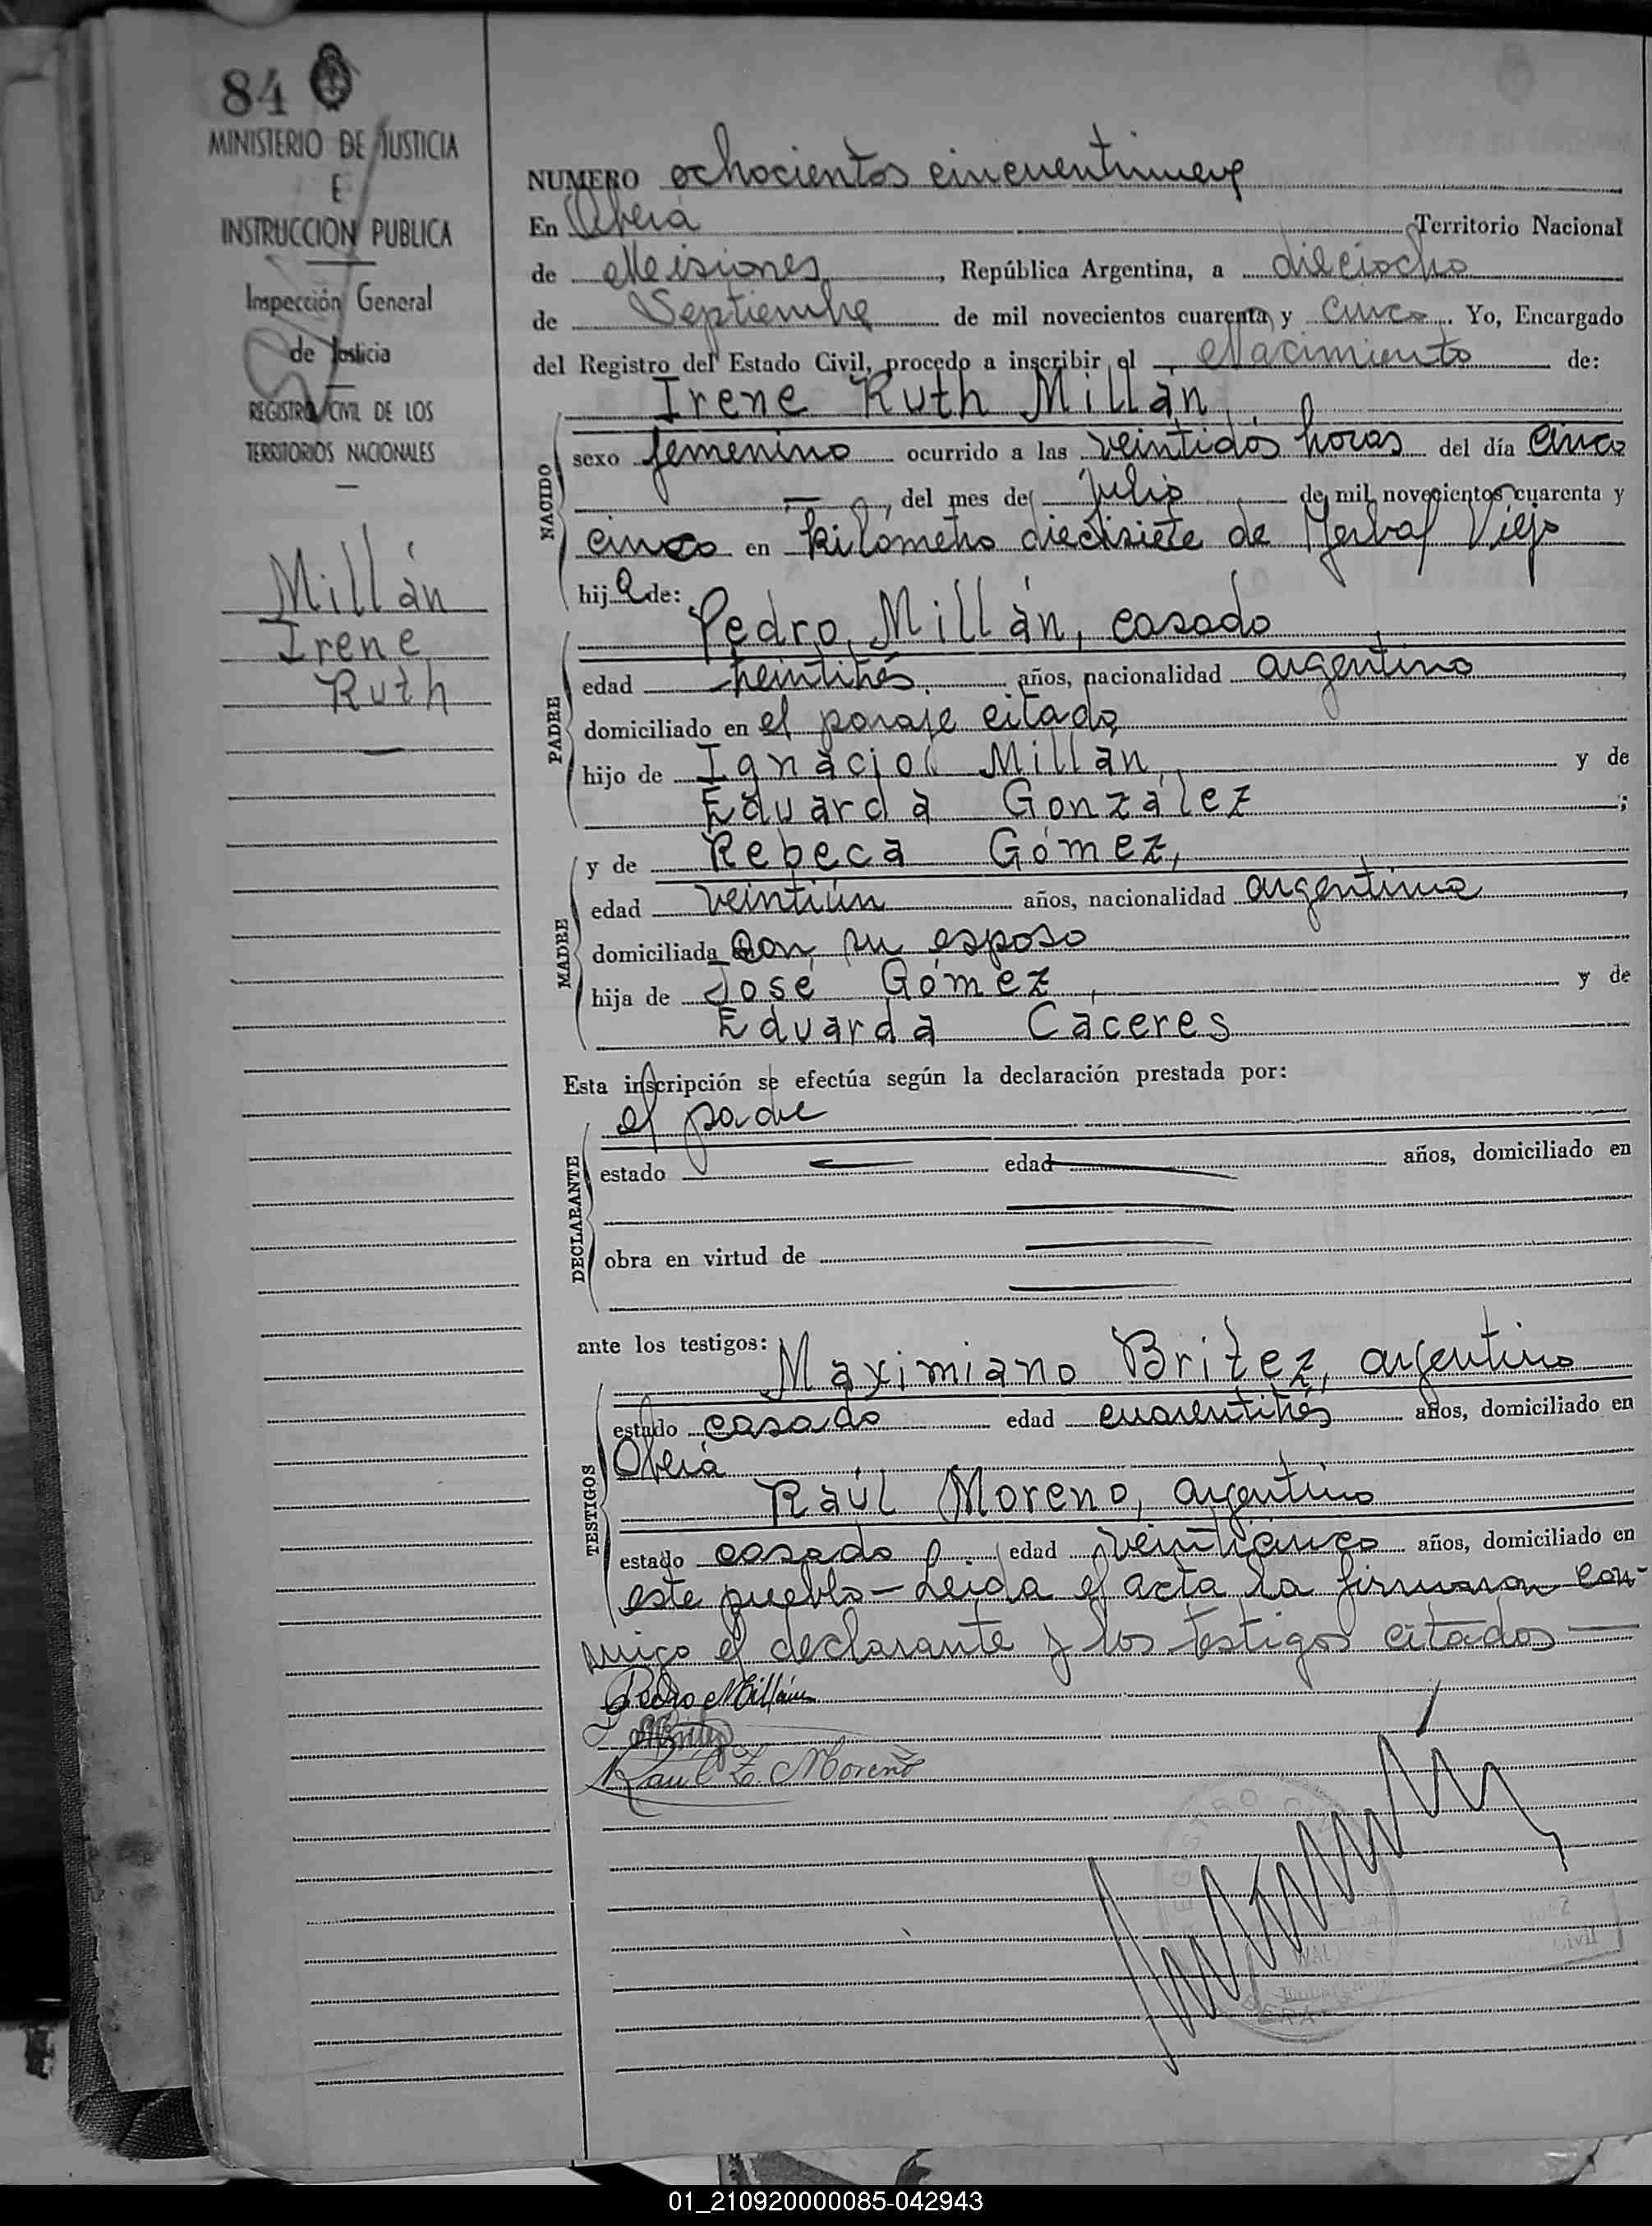 84
MINISTERIO DE JUSTICIA
E
INSTRUCCION PUBLICA
Inspección General
de Justicia
REGISTRO CIVIL DE LOS
TERRITORIOS NACIONALES
Millán
Irene
Ruth
NUMERO ochocientos cincuentinueve
En Oberá Territorio Nacional
de Misiones, República Argentina, a dieciocho
de Septiembre de mil novecientos cuarenta y cinco. Yo, Encargado
del Registro del Estado Civil, procedo a inscribir el Nacimiento de:
Irene Ruth Millán
NACIDO
sexo femenino ocurrido a las veintidós horas del día cinco
—, del mes de julio de mil novecientos cuarenta y
cinco en kilómetro diecisiete de Yerbal Viejo
hija de:
Pedro Millán, casado
PADRE
edad treintitrés años, nacionalidad argentino
domiciliado en el paraje citado,
hijo de Ignacio Millán, y de
Eduarda González ;
y de Rebeca Gómez,
MADRE
edad veintiún años, nacionalidad argentina,
domiciliada con su esposo
hija de José Gómez, y de
Eduarda Caceres
Esta inscripción se efectúa según la declaración prestada por:
el padre
DECLARANTE
estado — edad — años, domiciliado en
obra en virtud de
ante los testigos:
Maximiano Britez, argentino
TESTIGOS
estado casado edad cuarentitrés años, domiciliado en
Oberá
Raúl Moreno, argentino
estado casado edad veinticinco años, domiciliado en
este pueblo — Leída el acta la firmaron con-
migo el declarante y los testigos citados —
Pedro Millán
MBritez
Raúl E. Moreno
01_210920000085-042943